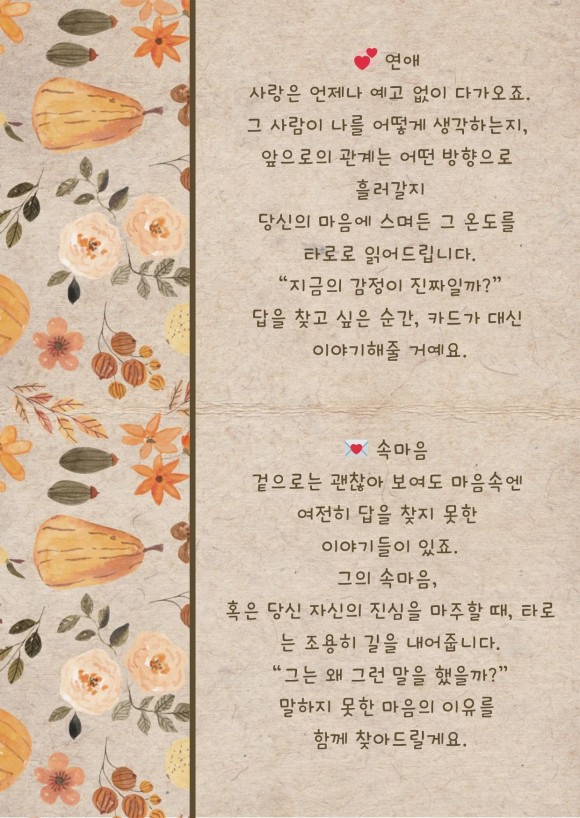 💕 연애
사랑은 언제나 예고 없이 다가오죠.
그 사람이 나를 어떻게 생각하는지,
앞으로의 관계는 어떤 방향으로
흘러갈지
당신의 마음에 스며든 그 온도를
타로로 읽어드립니다.
“지금의 감정이 진짜일까?”
답을 찾고 싶은 순간, 카드가 대신
이야기해줄 거예요.
💌 속마음
겉으로는 괜찮아 보여도 마음속엔
여전히 답을 찾지 못한
이야기들이 있죠.
그의 속마음,
혹은 당신 자신의 진심을 마주할 때, 타로
는 조용히 길을 내어줍니다.
“그는 왜 그런 말을 했을까?”
말하지 못한 마음의 이유를
함께 찾아드릴게요.